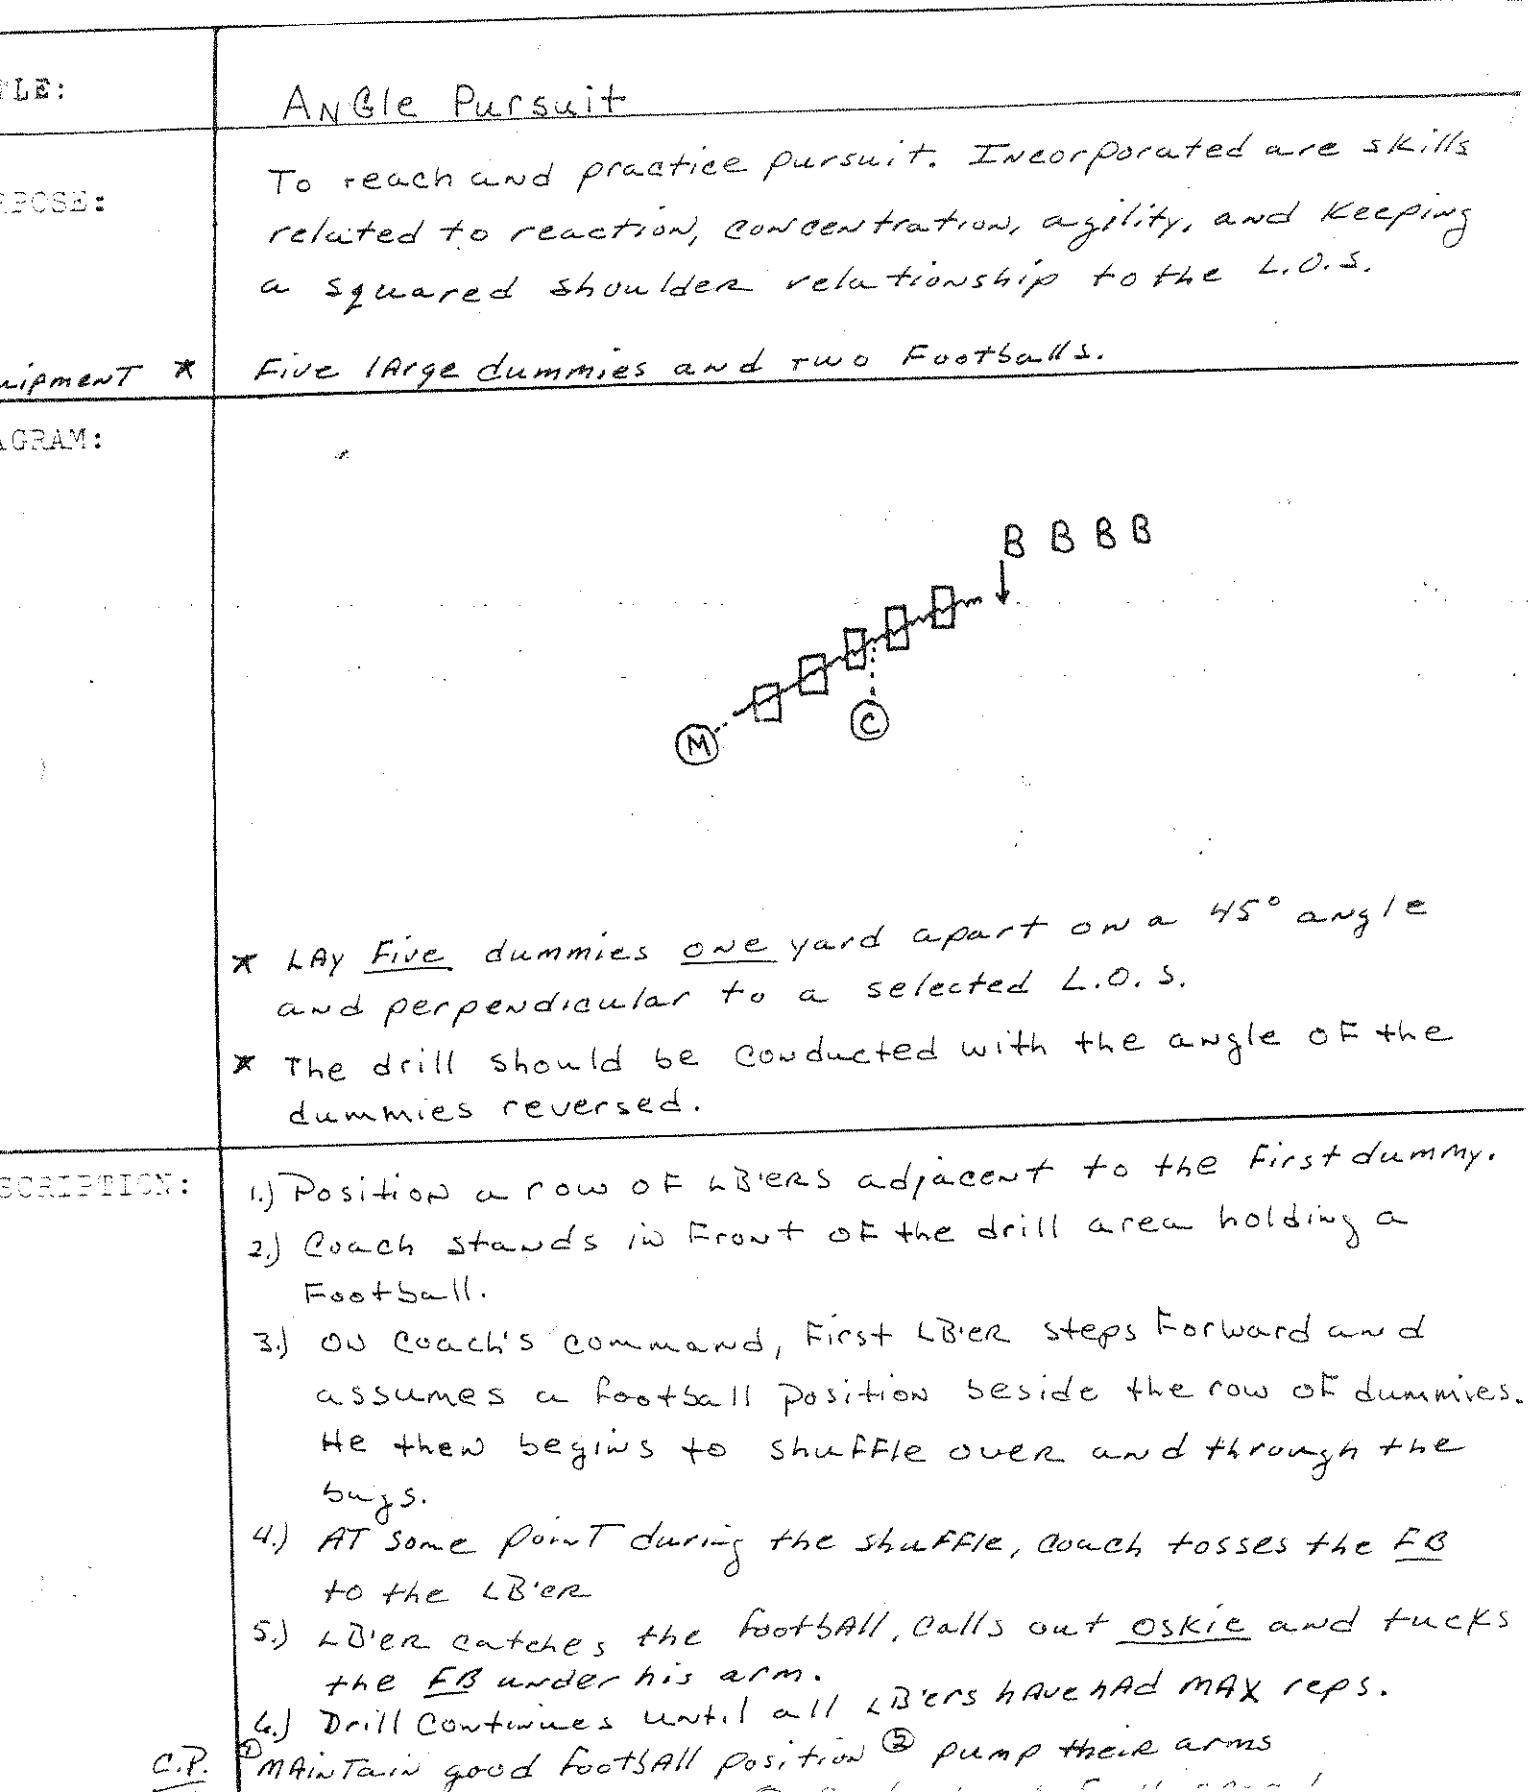 TLE:
ANGle Pursuit
RPOSE:
To reach and practice pursuit. Incorporated are skills
related to reaction, concentration, agility, and Keeping
a squared shoulder relationship to the L.O.S.
uipmenT *
Five lArge dummies and two Footballs.
AGRAM:
B B B B
M
C
* LAy Five dummies one yard apart on a 45° angle
and perpendicular to a selected L.O.S.
* The drill should be conducted with the angle of the
dummies reversed.
SCRIPTION:
1.) Position a row of LB'ERS adjacent to the first dummy.
2.) Coach stands in Front of the drill area holding a
Football.
3.) ON Coach's command, First LB'ER steps Forward and
assumes a football position beside the row of dummies.
He then begins to shuffle over and through the
bags.
4.) AT some poinT during the shuffle, coach tosses the FB
to the LB'er
5.) LB'ER catches the footbAll, calls out oskie and tucks
the FB under his arm.
6.) Drill Continues until all LB'ers hAve hAd MAX reps.
C.P.
① MAinTain good footbAll position ② pump their arms